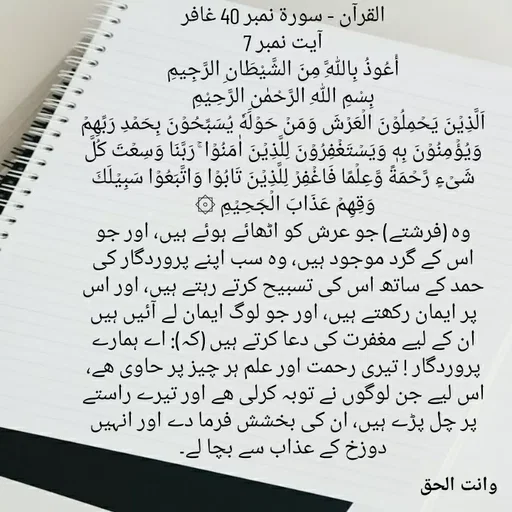 القرآن - سورة نمبر 40 غافر
آیت نمبر 7
أَعُوذُ بِاللّٰهِ مِنَ الشَّيْطَانِ الرَّجِيمِ
بِسْمِ اللّٰهِ الرَّحْمٰنِ الرَّحِيْمِ
اَلَّذِيۡنَ يَحۡمِلُوۡنَ الۡعَرۡشَ وَمَنۡ حَوۡلَهٗ يُسَبِّحُوۡنَ بِحَمۡدِ رَبِّهِمۡ
وَيُؤۡمِنُوۡنَ بِهٖ وَيَسۡتَغۡفِرُوۡنَ لِلَّذِيۡنَ اٰمَنُوۡا ۚ رَبَّنَا وَسِعۡتَ كُلَّ
شَىۡءٍ رَّحۡمَةً وَّعِلۡمًا فَاغۡفِرۡ لِلَّذِيۡنَ تَابُوۡا وَاتَّبَعُوۡا سَبِيۡلَكَ
وَقِهِمۡ عَذَابَ الۡجَحِيۡمِ ۞
وہ (فرشتے) جو عرش کو اٹھائے ہوئے ہیں، اور جو
اس کے گرد موجود ہیں، وہ سب اپنے پروردگار کی
حمد کے ساتھ اس کی تسبیح کرتے رہتے ہیں، اور اس
پر ایمان رکھتے ہیں، اور جو لوگ ایمان لے آئیں ہیں
ان کے لیے مغفرت کی دعا کرتے ہیں (کہ): اے ہمارے
پروردگار ! تیری رحمت اور علم ہر چیز پر حاوی ھے،
اس لیے جن لوگوں نے توبہ کرلی ھے اور تیرے راستے
پر چل پڑے ہیں، ان کی بخشش فرما دے اور انہیں
دوزخ کے عذاب سے بچا لے۔
وانت الحق